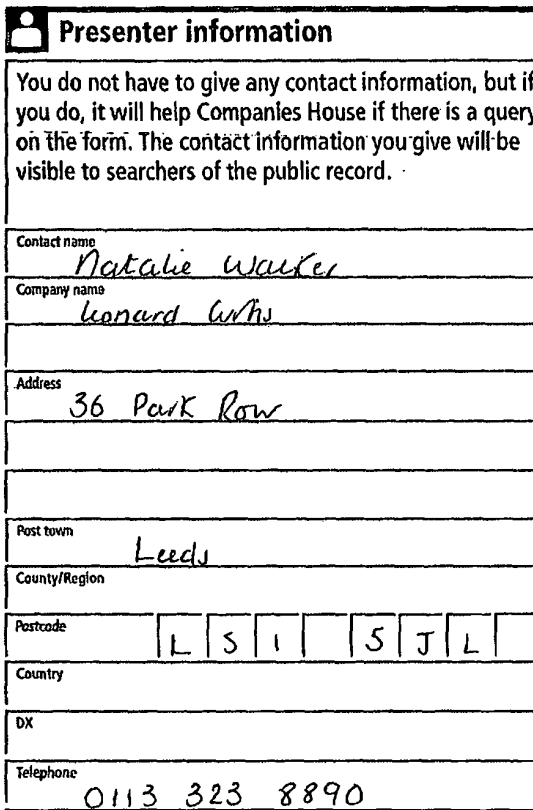 Presenter information
You do not have to give any contact information, but if
you do, it will help Companies House if there is a query
on the form. The contact information you give will be
visible to searchers of the public record.
Contact name
Natalie Walker
Company name
Leonard Curtis
Address
36 Park Row
Post town
Leeds
County/Region
Postcode
LS1 5JL
Country
DX
Telephone
0113 323 8890